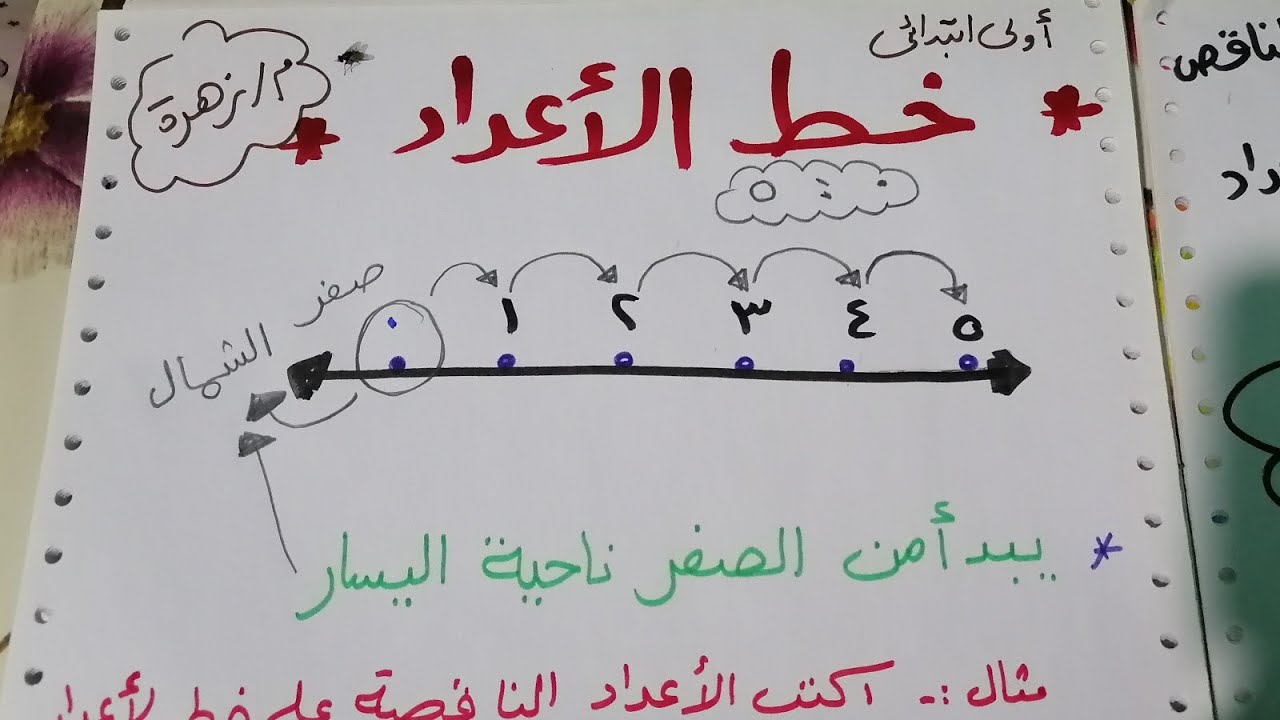 أولى ابتدائى
م / زهرة
* خط الأعداد *
صفر
الشمال
٠ ١ ٢ ٣ ٤ ٥
* يبدأ من الصفر ناحية اليسار
مثال :- اكتب الأعداد الناقصة على خط لأعداد